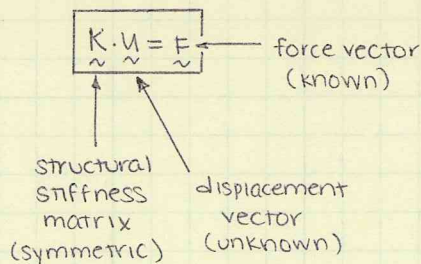 K·U = F
force vector
(known)
structural
stiffness
matrix
(symmetric)
displacement
vector
(unknown)